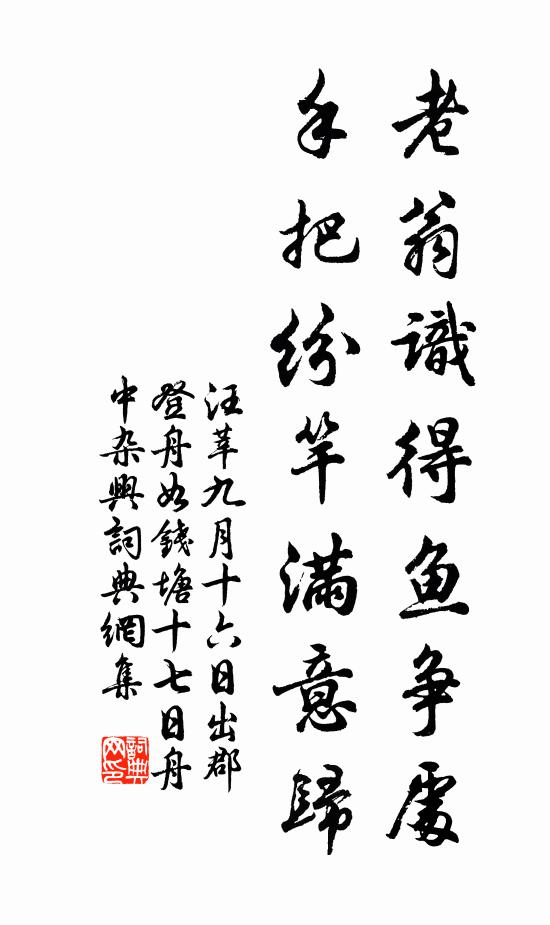 老翁識得鱼争處
手把纷竿滿意歸
汪莘九月十六日出郡
登舟如錢塘十七日舟
中杂興詞典網集
詞典
网印